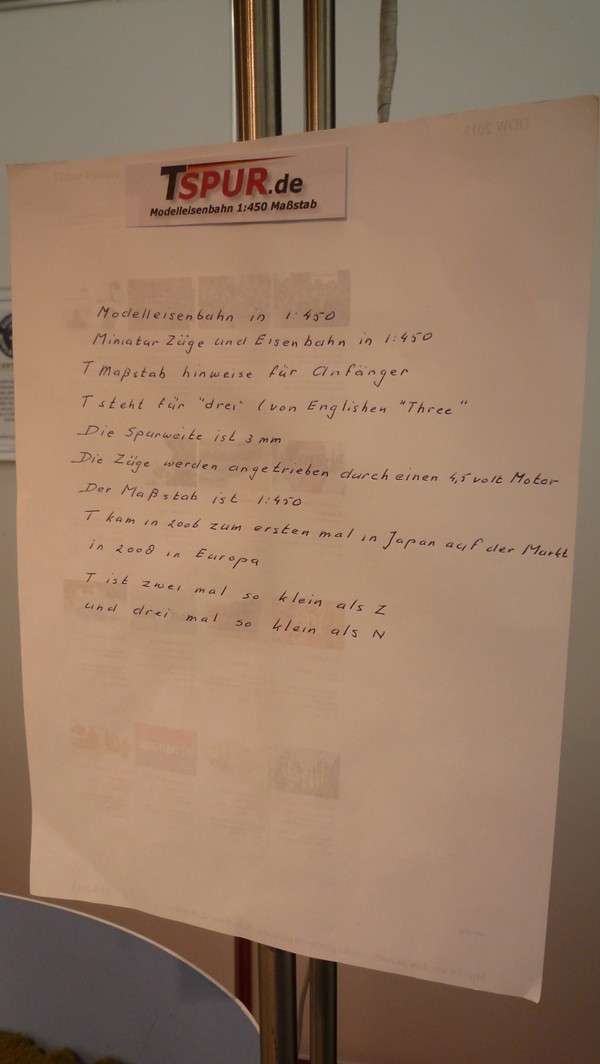 TSPUR.de
Modelleisenbahn 1:450 Maßstab
Modelleisenbahn in 1:450
Miniatar Züge und Eisenbahn in 1:450
T Maßstab hinweise für Anfänger
T steht für "drei" (von Englishen "Three"
Die Spurweite ist 3 mm
Die Züge werden angetrieben durch einen 4,5 volt Motor
Der Maßstab ist 1:450
T kam in 2006 zum ersten mal in Japan auf der Markt
in 2008 in Europa
T ist zwei mal so klein als Z
und drei mal so klein als N